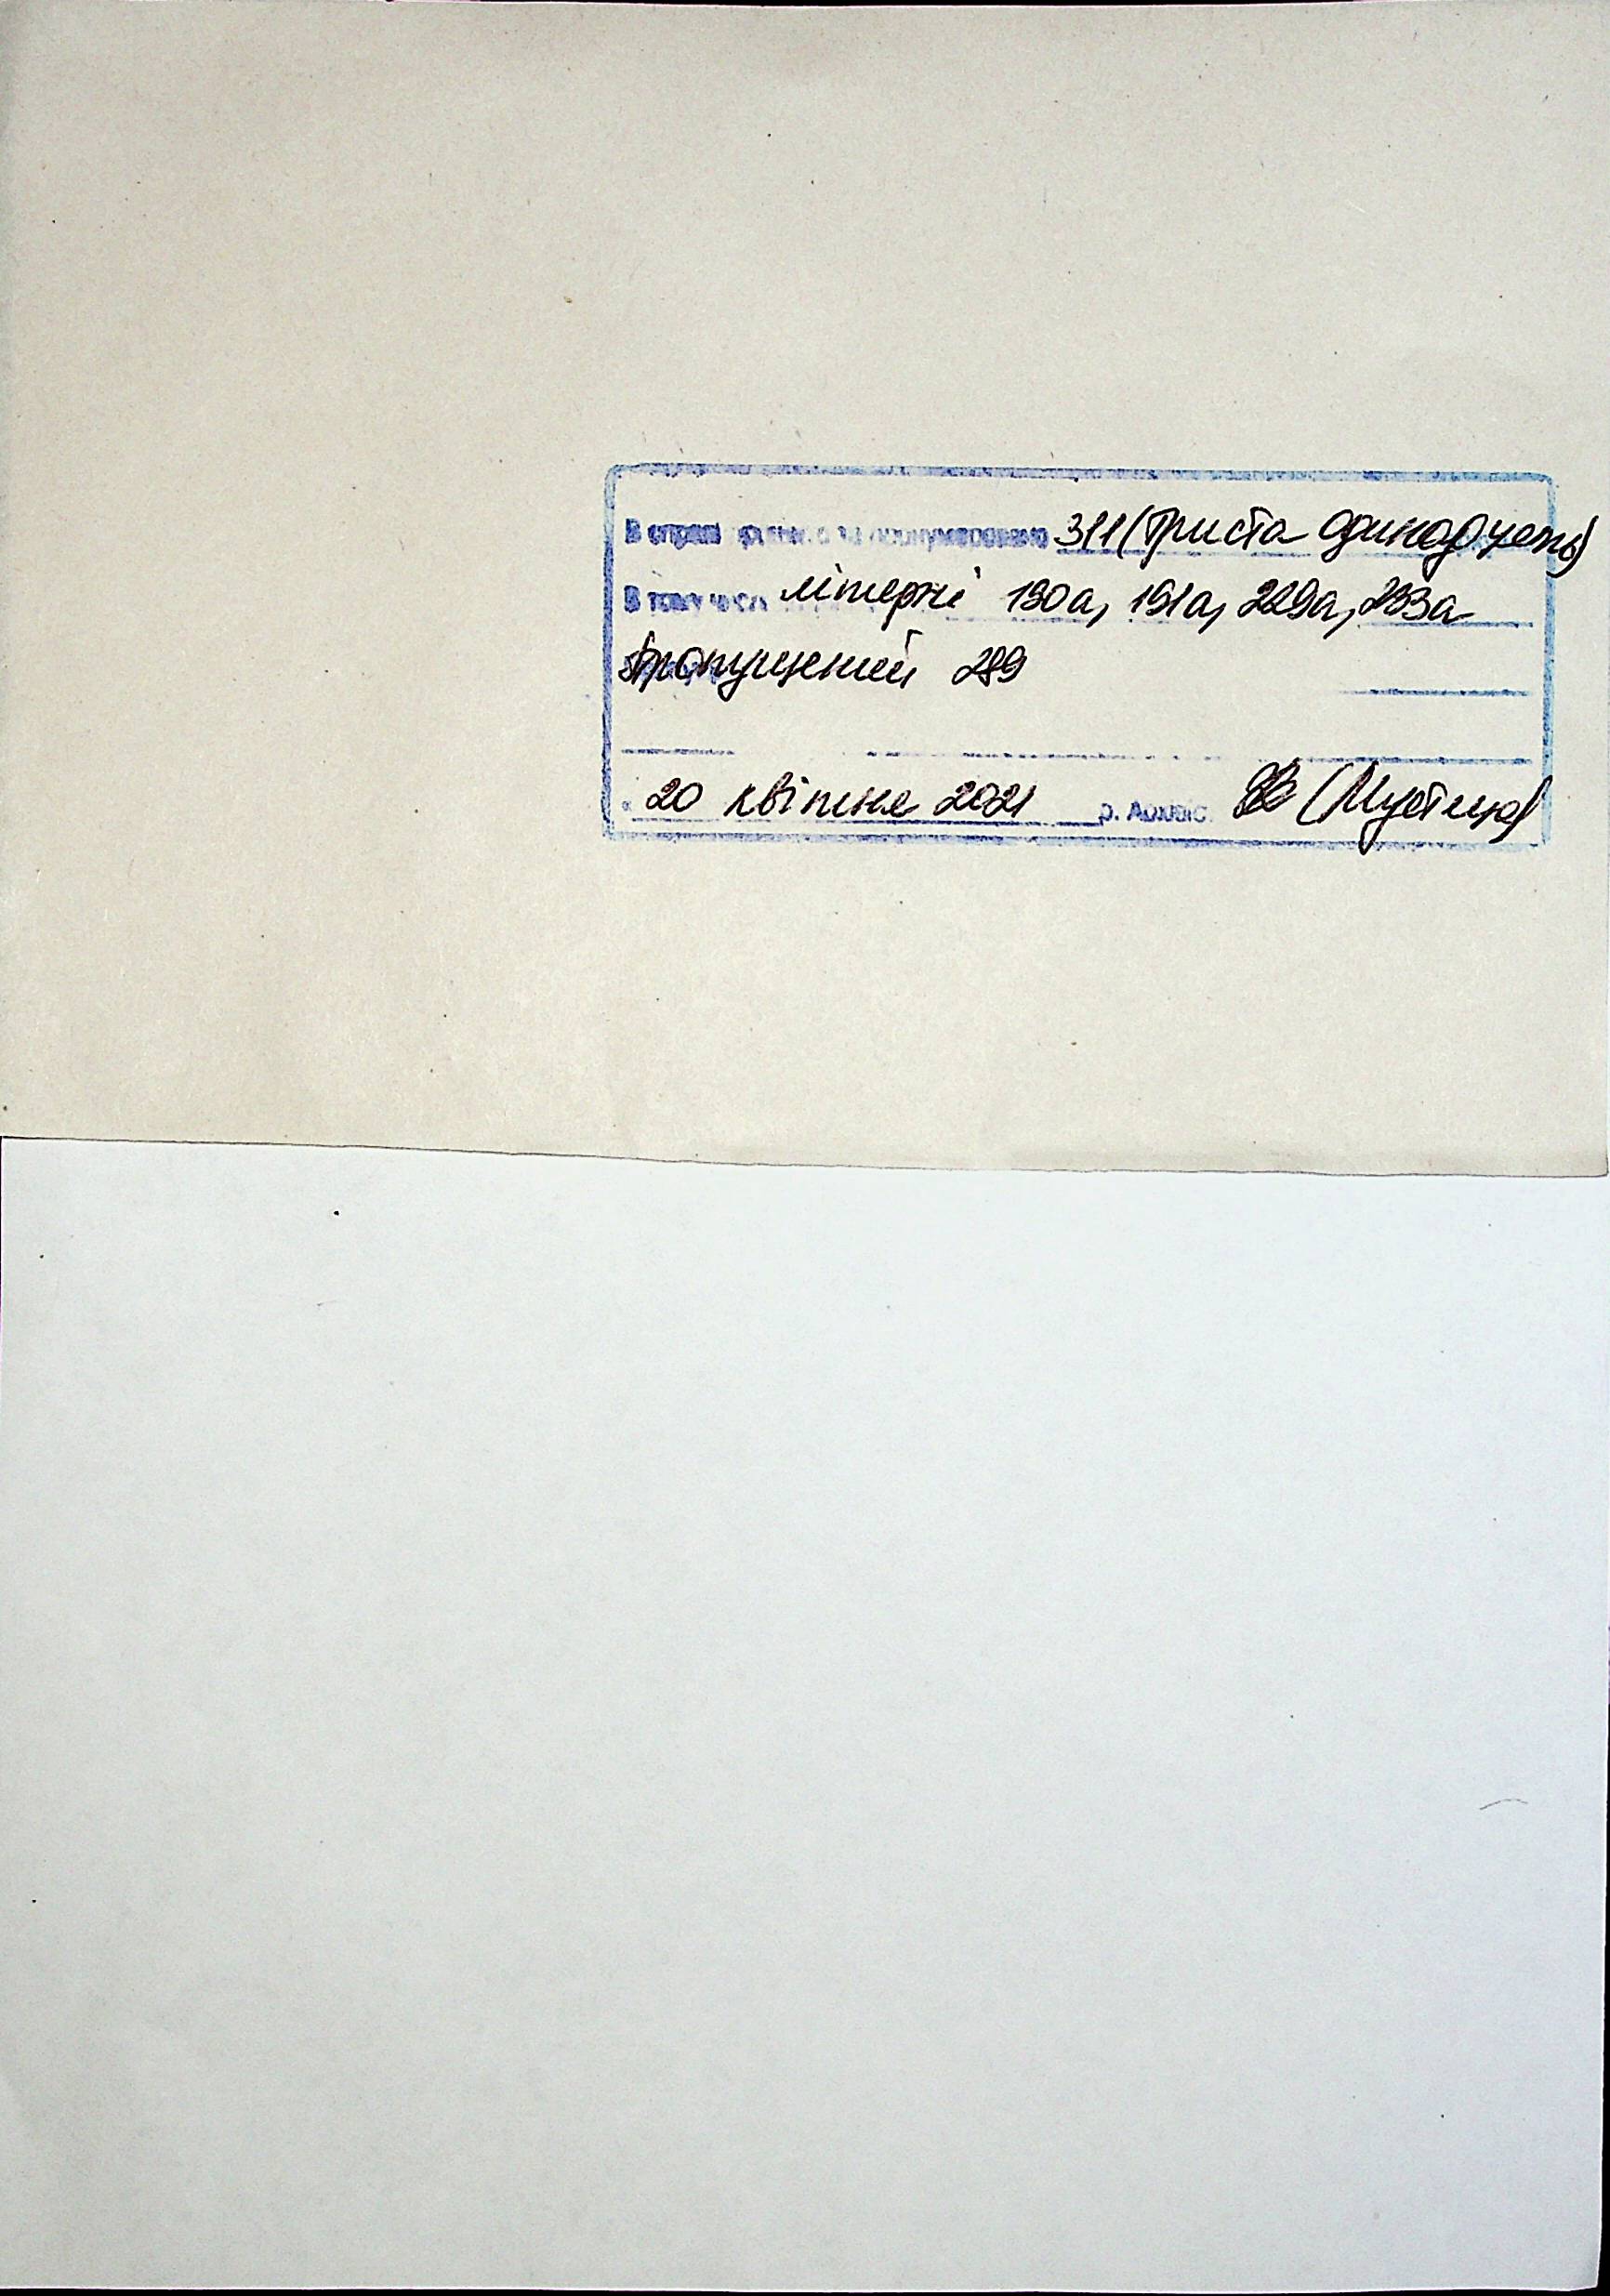 В справі підшито та пронумеровано 311 (триста одинадцять)
В тому числі літерні 190а, 191а, 229а, 233а
пропущений 289
" 20 квітня 2021 р. Архівіс